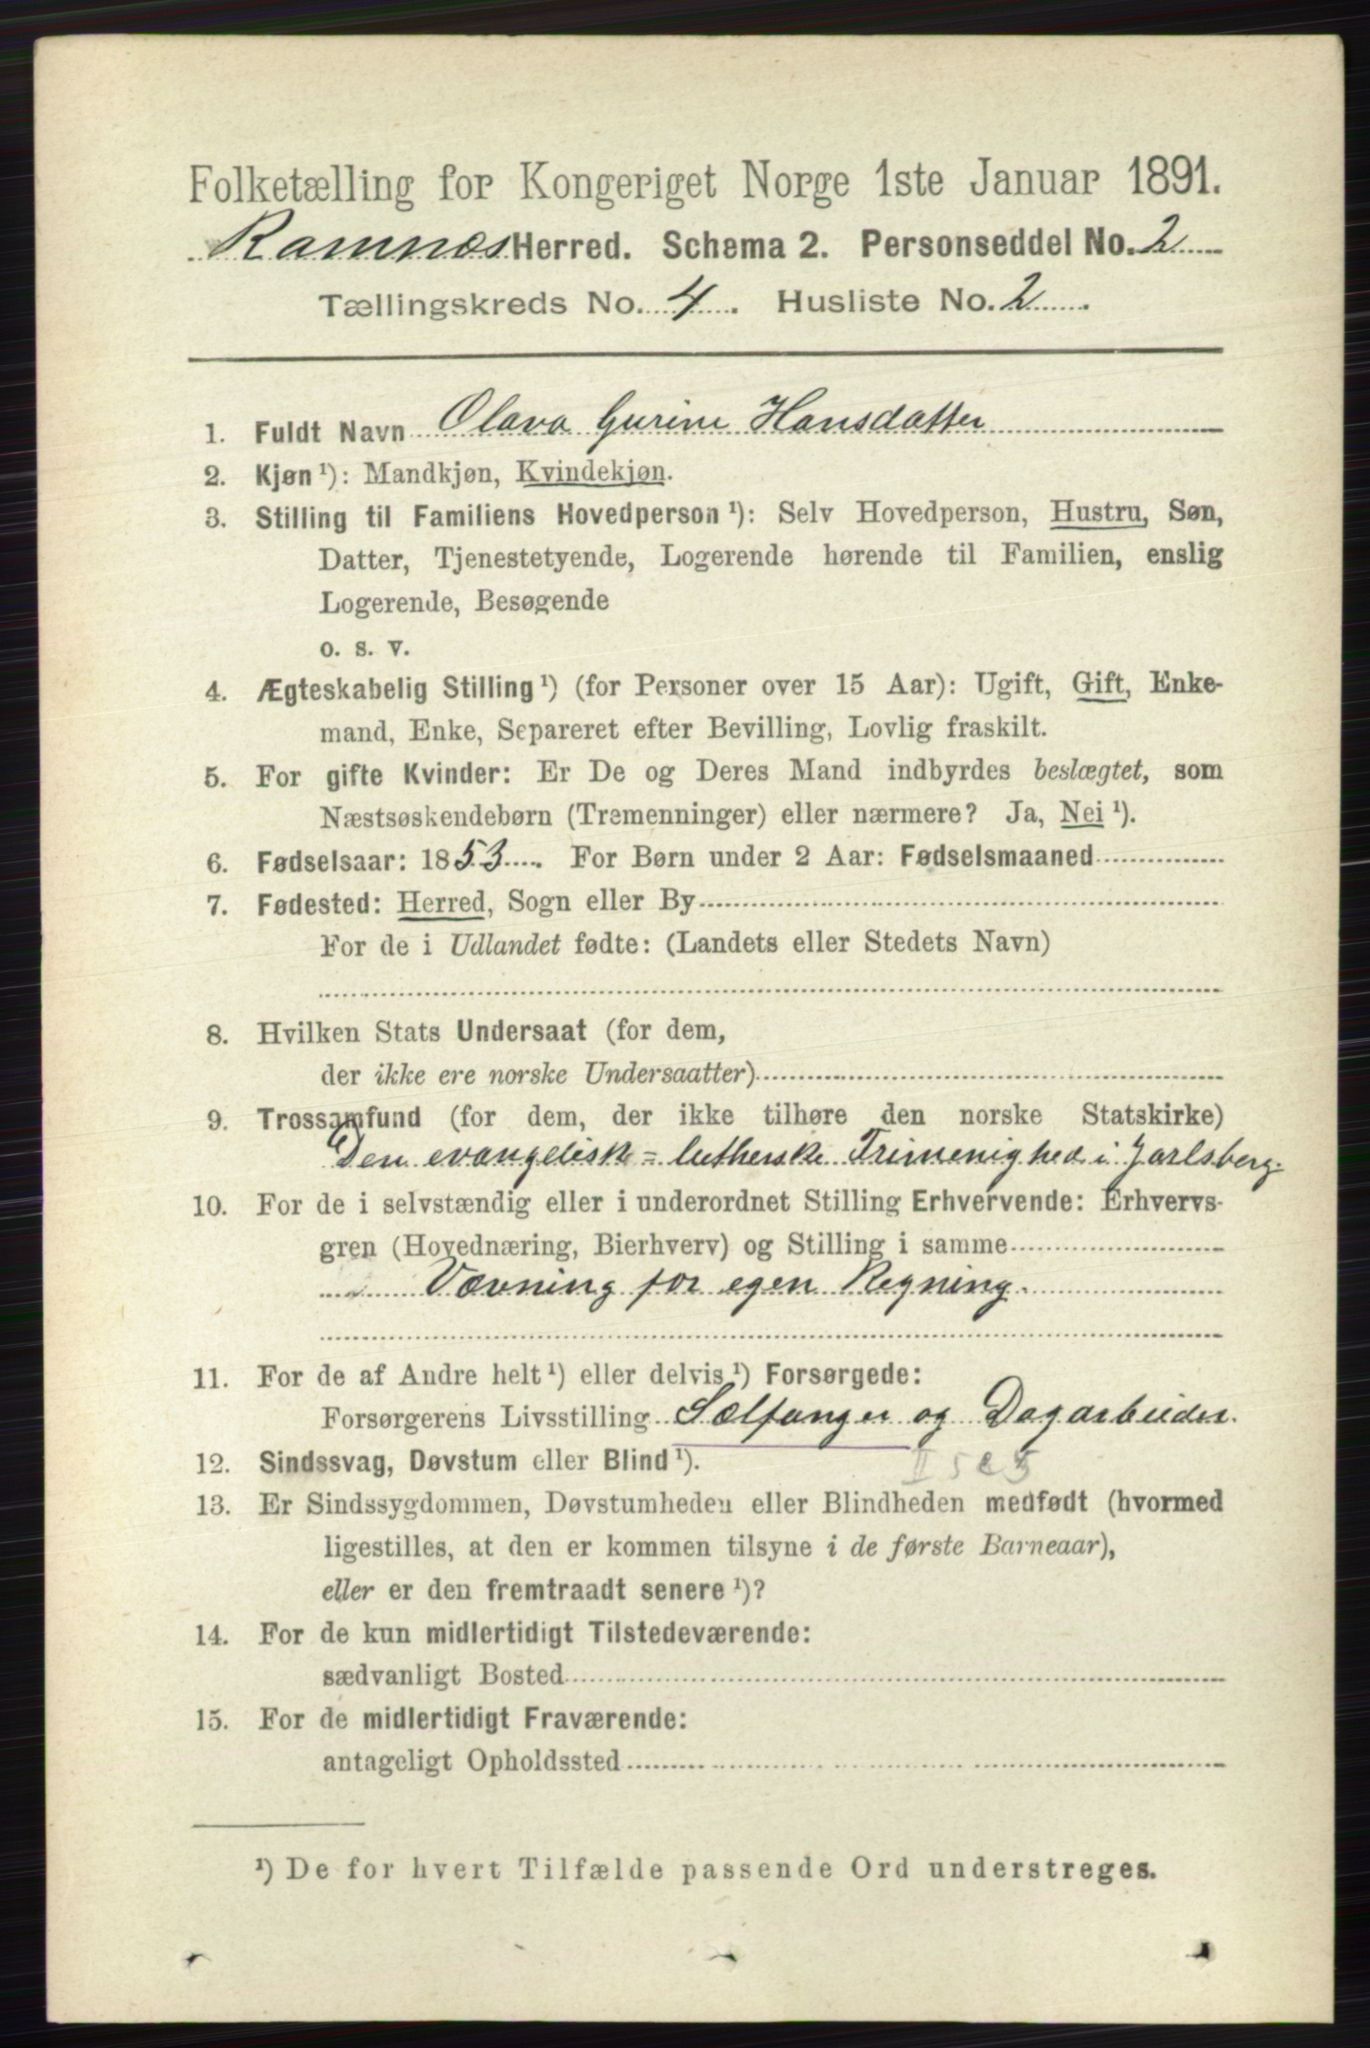 Folketælling for Kongeriget Norge 1ste Januar 1891.
Ramnæs Herred. Schema 2. Personseddel No. 2
Tællingskreds No. 4. Husliste No. 2.
1. Fuldt Navn Olava Gurine Hansdatter
2. Kjøn ¹): Mandkjøn, Kvindekjøn.
3. Stilling til Familiens Hovedperson ¹): Selv Hovedperson, Hustru, Søn,
Datter, Tjenestetyende, Logerende hørende til Familien, enslig
Logerende, Besøgende
o. s. v.
4. Ægteskabelig Stilling ¹) (for Personer over 15 Aar): Ugift, Gift, Enke-
mand, Enke, Separeret efter Bevilling, Lovlig fraskilt.
5. For gifte Kvinder: Er De og Deres Mand indbyrdes beslægtet, som
Næstsøskendebørn (Tremenninger) eller nærmere? Ja, Nei ¹).
6. Fødselsaar: 1853. For Børn under 2 Aar: Fødselsmaaned
7. Fødested: Herred, Sogn eller By
For de i Udlandet fødte: (Landets eller Stedets Navn)
8. Hvilken Stats Undersaat (for dem,
der ikke ere norske Undersaatter)
9. Trossamfund (for dem, der ikke tilhøre den norske Statskirke)
Den evangelisk=lutherske Frimenighed i Jarlsberg.
10. For de i selvstændig eller i underordnet Stilling Erhvervende: Erhvervs-
gren (Hovednæring, Bierhverv) og Stilling i samme
Vævning for egen Regning.
11. For de af Andre helt ¹) eller delvis ¹) Forsørgede:
Forsørgerens Livsstilling Sælfanger og Dagarbeider.
12. Sindssvag, Døvstum eller Blind ¹).
13. Er Sindssygdommen, Døvstumheden eller Blindheden medfødt (hvormed
ligestilles, at den er kommen tilsyne i de første Barneaar),
eller er den fremtraadt senere ¹)?
14. For de kun midlertidigt Tilstedeværende:
sædvanligt Bosted
15. For de midlertidigt Fraværende:
antageligt Opholdssted
¹) De for hvert Tilfælde passende Ord understreges.